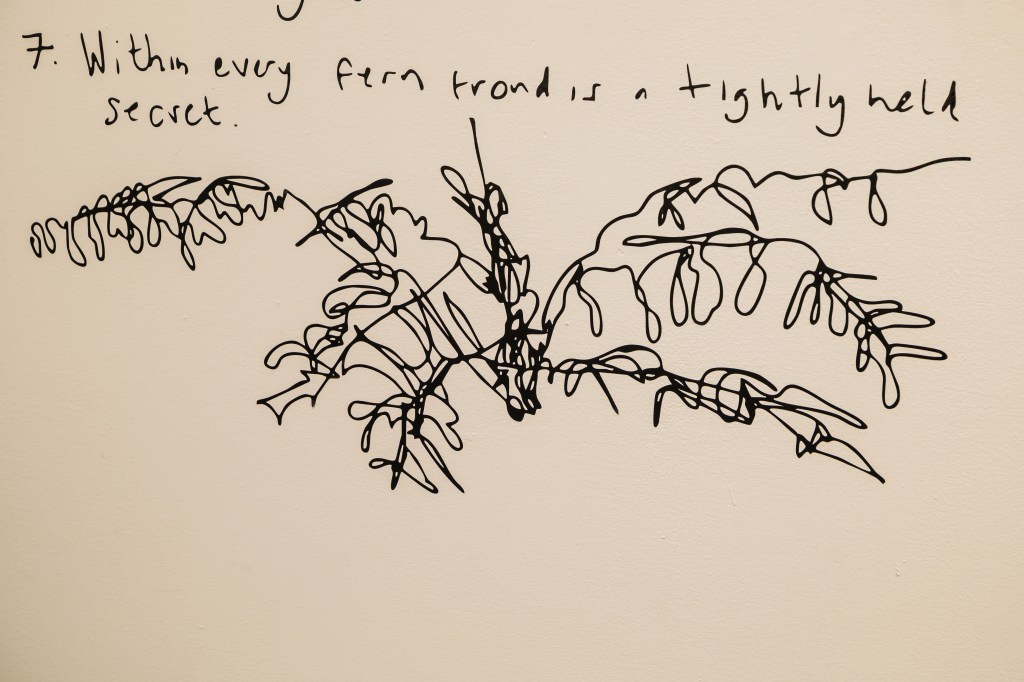 7. Within every fern frond is a tightly held
secret.